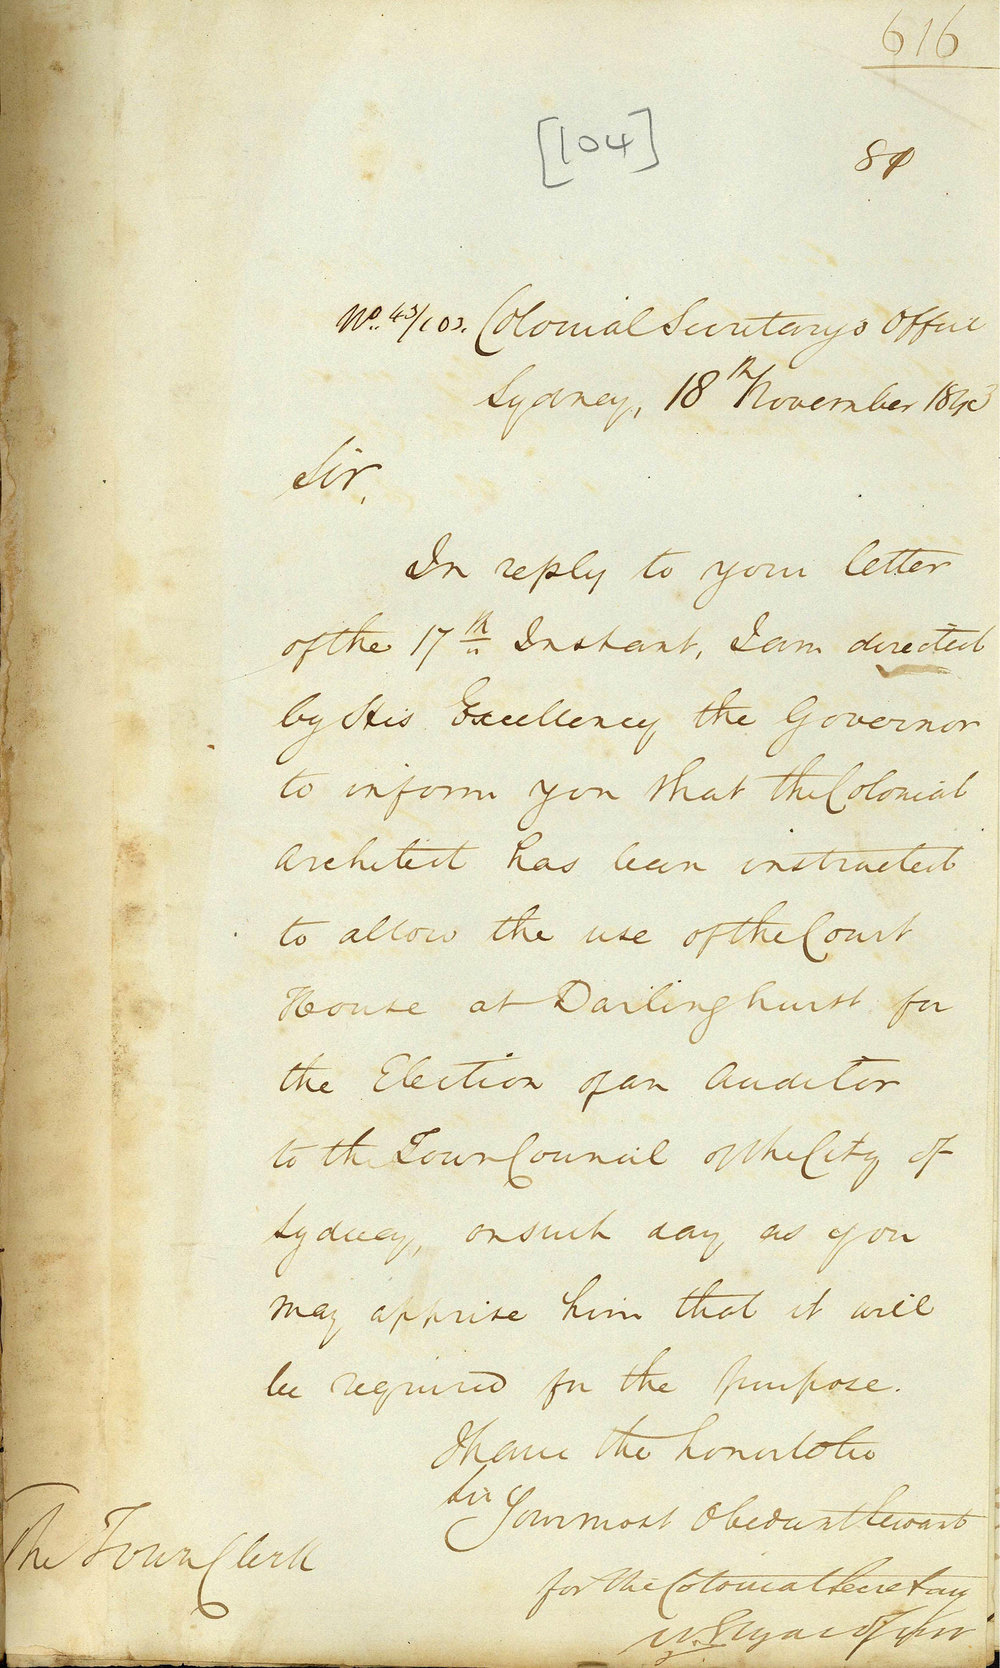 616
[104]
No. 43/103. Colonial Secretarys Office
Sydney, 18th November 1843
Sir,
In reply to your letter
of the 17th Instant, I am directed
by His Excellency the Governor
to inform you that the Colonial
Architect has been instructed
to allow the use of the Court
House at Darlinghurst for
the Election of an Auditor
to the Town Council of the City of
Sydney, on such day as you
may apprise him that it will
be required for the purpose.
I have the honor to be
Sir
Your most Obedient Servant
for the Colonial Secretary
The Town Clerk